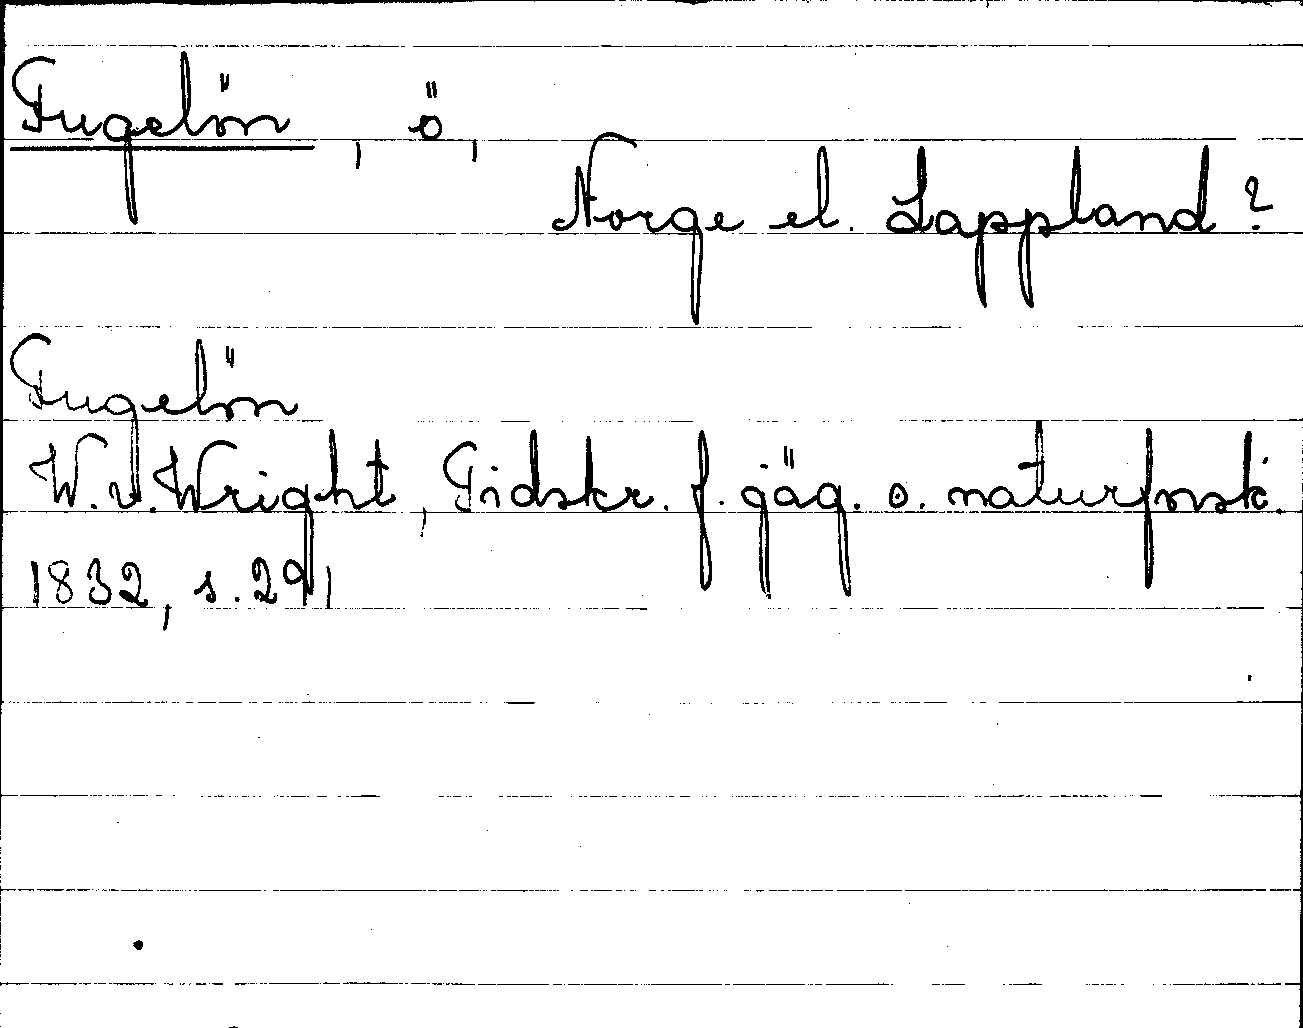 Fugelön, ö,
Norge el. Lappland?
Fugelön
W. v. Wright, Tidskr. f. jäg. o. naturforsk.
1832, s. 291